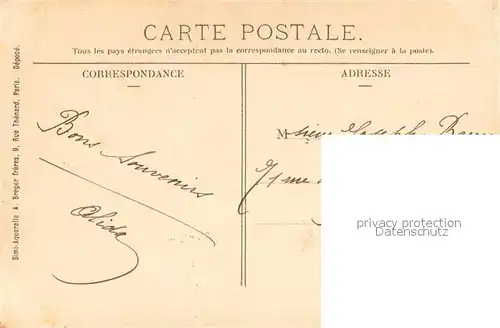 CARTE POSTALE.
Tous les pays étrangers n'acceptent pas la correspondance au recto. (Se renseigner à la poste).
CORRESPONDANCE
ADRESSE
Simi-Aquarelle A. Breger frères, 9, Rue Thénard, Paris. Déposé.
Bons Souvenirs
Alida
Msieur Joseph
71 rue
privacy protection
Datenschutz